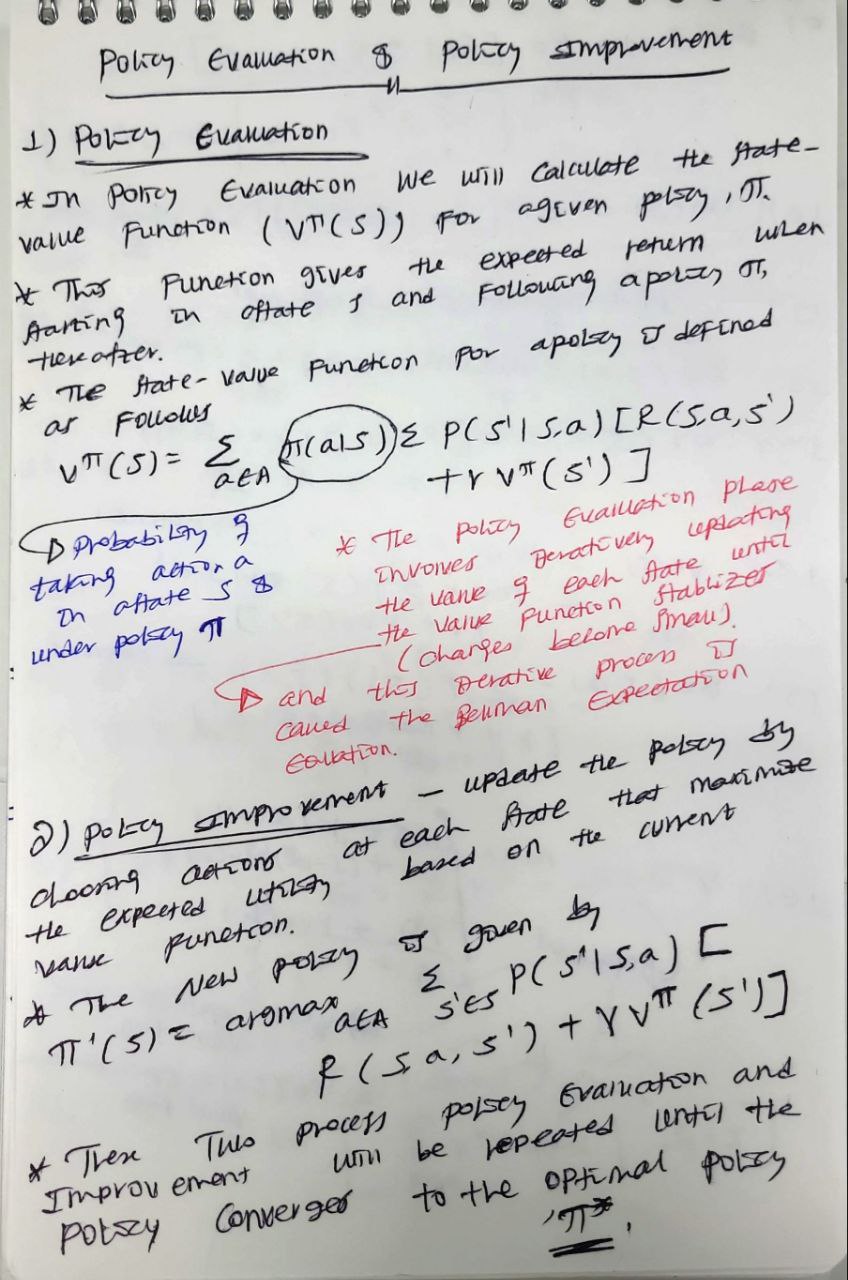 Policy Evaluation & Policy Improvement
1) Policy Evaluation
* In Policy Evaluation we will calculate the state-
value function (Vπ(s)) for a given policy, π.
* This function gives the expected return when
starting in a state s and following a policy π,
thereafter.
* The state-value function for a policy is defined
as follows
Vπ(s) = Σ a∈A π(a|s) Σ P(s'|s,a) [R(s,a,s')
+γ Vπ(s')]
Probability of
taking action a
in a state s &
under policy π
* The policy Evaluation phase
involves iteratively updating
the value of each state until
the value function stablizes
(changes become small).
and this iterative process is
called the Bellman Expectation
Equation.
2) Policy Improvement – update the policy by
choosing actions at each state that maximize
the expected utility based on the current
value function.
* The New policy is given by
π'(s) = argmax a∈A Σ s'∈S P(s'|s,a) [
R(s,a,s') + γ Vπ (s')]
* These Two process policy Evaluation and
Improvement will be repeated until the
Policy Converges to the optimal policy
'π*'.